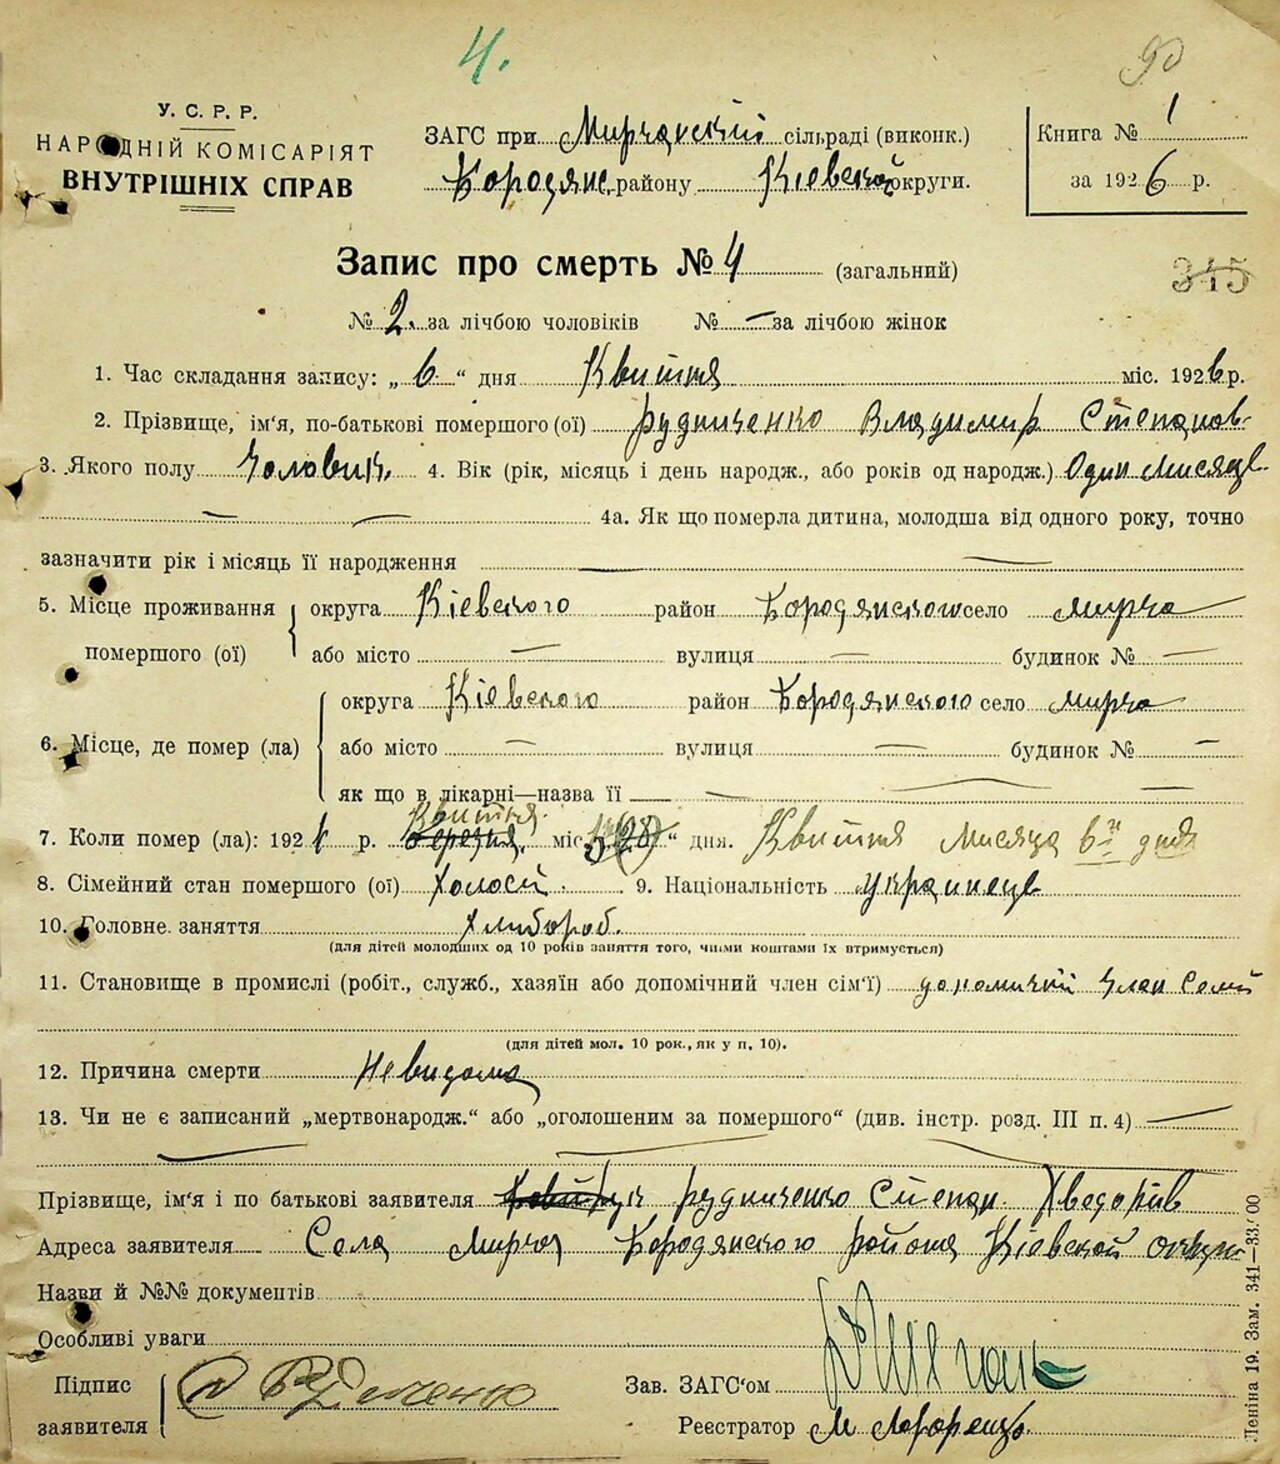 4.
90
У. С. Р. Р.
НАРОДНІЙ КОМІСАРІЯТ
ВНУТРІШНІХ СПРАВ
ЗАГС при Мирчанский сільраді (виконк.)
Бородянс. району Кіевской округи.
Книга № 1
за 1926 р.
Запис про смерть № 4 (загальний)
345
№ 2. за лічбою чоловіків № — за лічбою жінок
1. Час складання запису: „ 6 “ дня Квиття міс. 1926 р.
2. Прізвище, ім'я, по-батькові помершого (ої) Рудниченко Владимир Степанов
3. Якого полу Чоловик. 4. Вік (рік, місяць і день народж., або років од народж.) Один Мисяць
— — 4а. Як що померла дитина, молодша від одного року, точно
зазначити рік і місяць її народження — —
5. Місце проживання помершого (ої) округа Кіевского район Бородянского село Мирча
або місто — вулиця — будинок № —
6. Місце, де помер (ла) округа Кіевского район Бородянского село Мирча
або місто — вулиця — будинок № —
як що в лікарні—назва її — — —
Квиття.
7. Коли помер (ла): 192 р. Березня, міс (28) “ дня. Квиття Мисяца 6го дня
8. Сімейний стан помершого (ої) Холостй. 9. Національність Украинець
10. Головне заняття Хлибороб.
(для дітей молодших од 10 років заняття того, чиїми коштами їх втримується)
11. Становище в промислі (робіт., служб., хазяїн або допомічний член сім'ї) допомичний Член Семи
(для дітей мол. 10 рок., як у п. 10).
12. Причина смерти Невидома
13. Чи не є записаний „мертвонародж.“ або „оголошеним за помершого“ (див. інстр. розд. III п. 4) —
— — —
Прізвище, ім'я і по батькові заявителя Рудниченко Степан Хведорив
Адреса заявителя Села Мирча Бородянского района Кіевской округ
Назви й №№ документів
Особливі уваги
Підпис заявителя
Зав. ЗАГС'ом
Реєстратор М
Леніна 19. Зам. 341—33.000